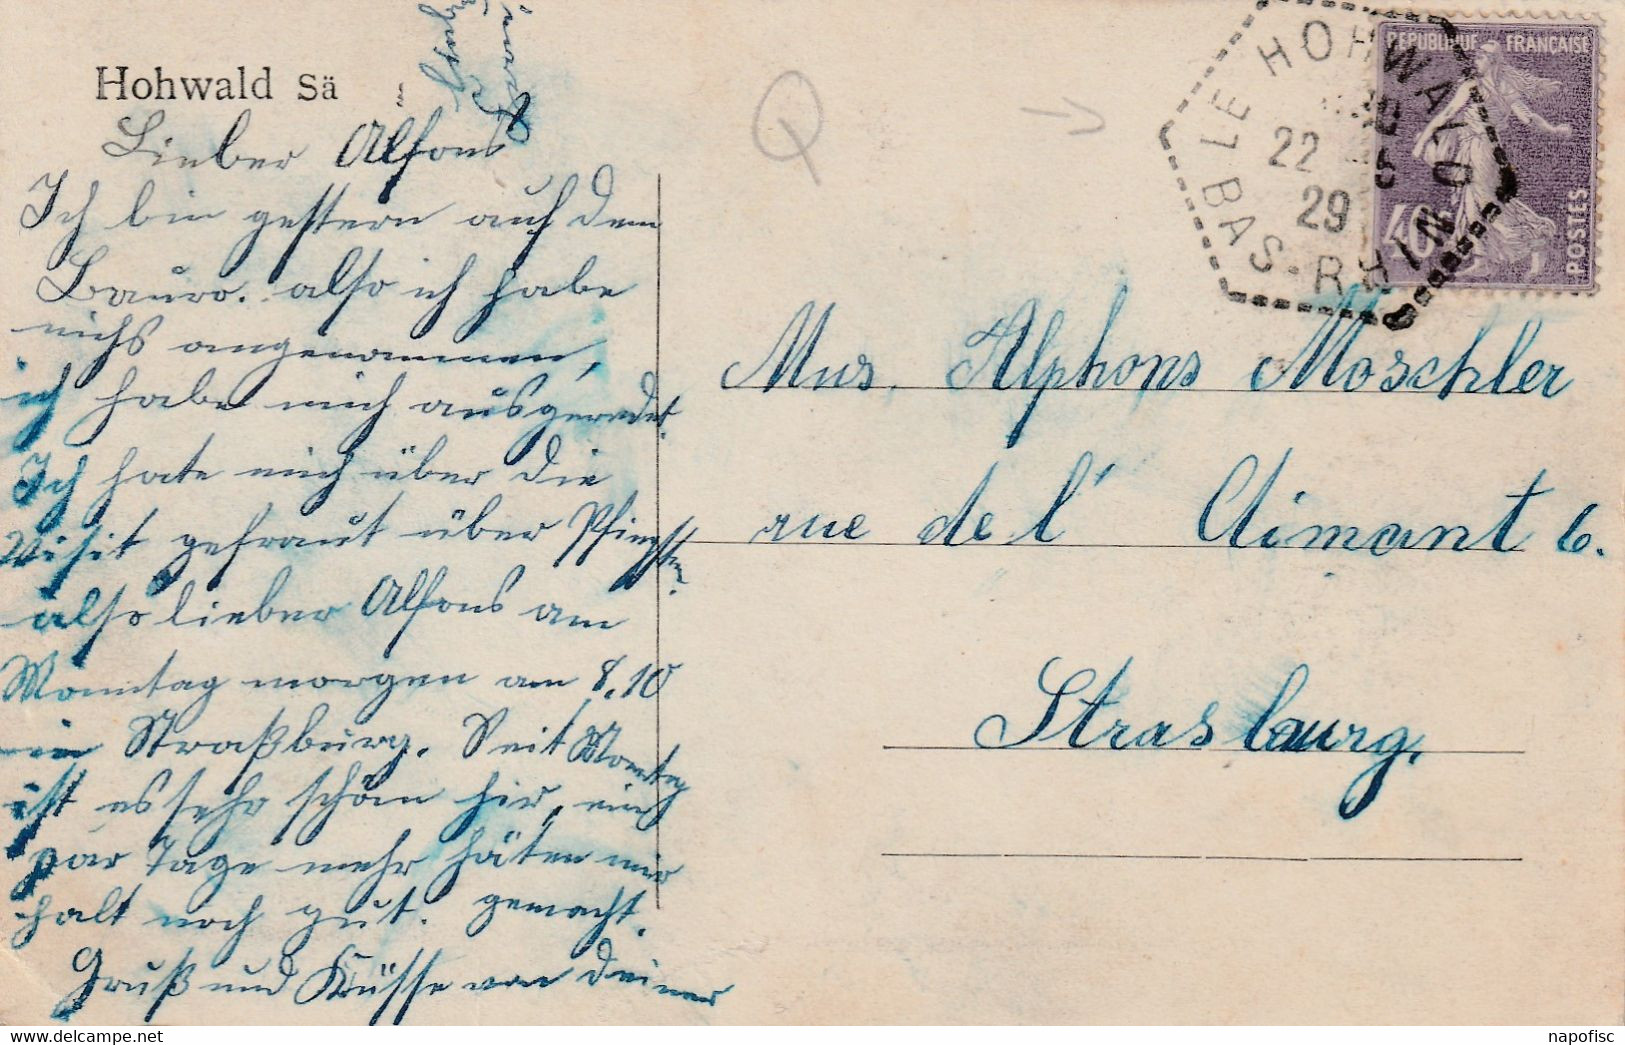 Hohwald Sä
Lieber Alfons
Ich bin gestern auf dem
Büro. also ich habe
nichs angenommen,
ich habe mich ausgeredet.
Ich hate mich über die
Visit gefraut über Pfingsten.
also lieber Alfons am
Monntag morgen am 8.10
in Straßburg. Seit Montag
ist es sehr schön hir, ein
par Tage mehr häten mir
halt noch gut. gemacht.
Gruß und Küsse von Deiner
LE HOHWALD
BAS-RHIN
22
5
29
REPUBLIQUE FRANÇAISE
40c
POSTES
Mus. Alphons Moschler
rue de l' Aimant 6.
Strasbourg,
napofisc